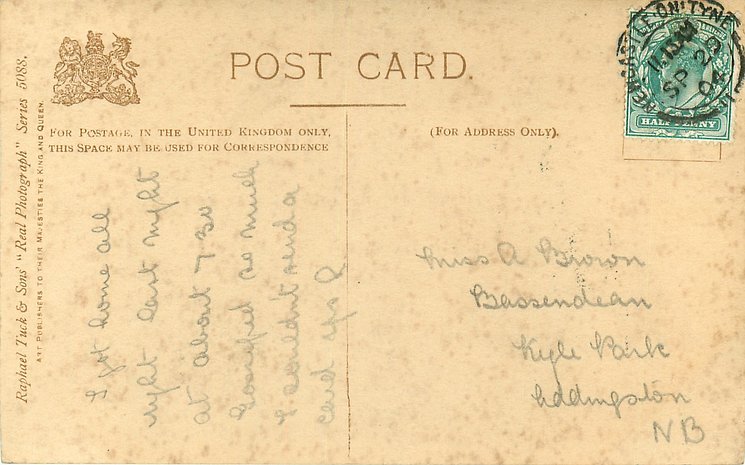 POST CARD.
FOR POSTAGE, IN THE UNITED KINGDOM ONLY,
THIS SPACE MAY BE USED FOR CORRESPONDENCE
(FOR ADDRESS ONLY).
Raphael Tuck & Sons' "Real Photograph" Series 5088.
ART PUBLISHERS TO THEIR MAJESTIES THE KING AND QUEEN.
NEWCASTLE ON TYNE
SP 20
04
HALF PENNY
I got home all
right last night
at about 7 30
Gossiped so much
I couldn't send a
card
Miss A Brown
Bassendean
Kyle Park
Uddingston
NB